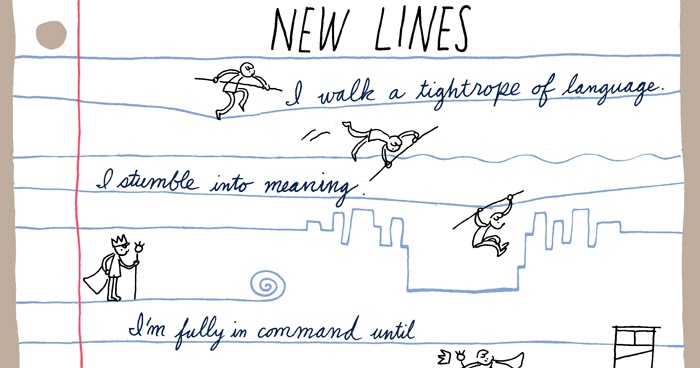 NEW LINES
I walk a tightrope of language.
I stumble into meaning.
I'm fully in command until